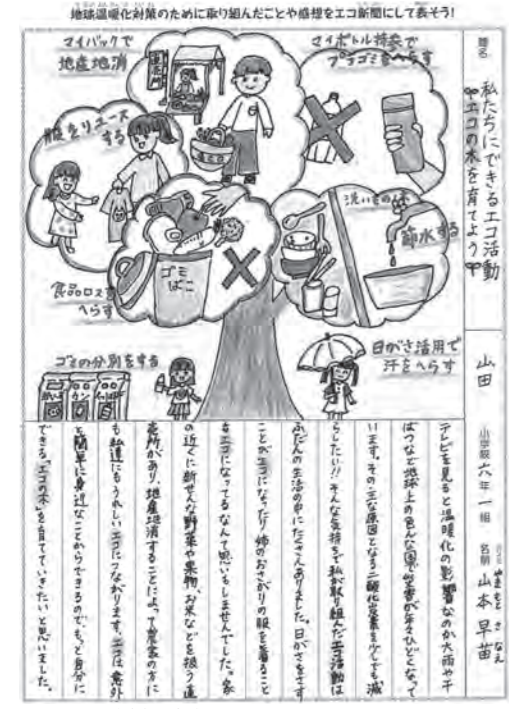 地球温暖化対策のために取り組んだことや感想をエコ新聞にして表そう!
題名
私たちにできるエコ活動
エコの木を育てよう
山田 小学校 六年 一組 名前 山本 早苗
やまもと さなえ
マイバックで
地産地消
マイボトル持参で
プラゴミをへらす
服をリユース
する
洗いもの
節水する
食品ロスを
へらす
ゴミ
ばこ
ゴミの分別をする
カン
日がさ活用で
汗をへらす
テレビを見ると温暖化の影響なのか大雨や干
ばつなど地球上の色んな国で災害が年々ひどくなって
います。その主な原因となる二酸化炭素を少しでも減
らしたい!!そんな気持ちで私が取り組んだエコ活動は
ふだんの生活の中にたくさんありました。日がさをさす
ことがエコになったり姉のおさがりの服を着ること
もエコになってるなんて思いもしませんでした。家
の近くに新せんな野菜や果物、お米などを扱う直
売所があり、地産地消することによって農家の方に
も私達にもうれしいエコにつながります。エコは意外
と簡単に身近なことからできるので、もっと自分に
できる「エコの木」を育てていきたいと思いました。